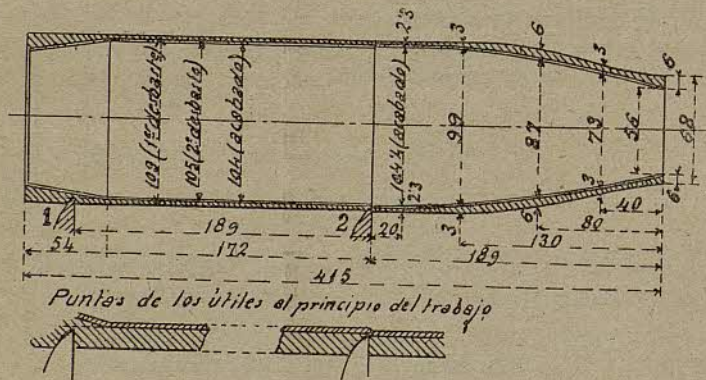 103 (1er desbaste)
105 (2º desbaste)
104 (acabado)
104'4 (acabado)
2'3
3
6
3
6
99
87
73
56
68
2'3
3
6
3
6
1
2
189
20
40
80
130
54
172
189
415
Puntas de los útiles al principio del trabajo